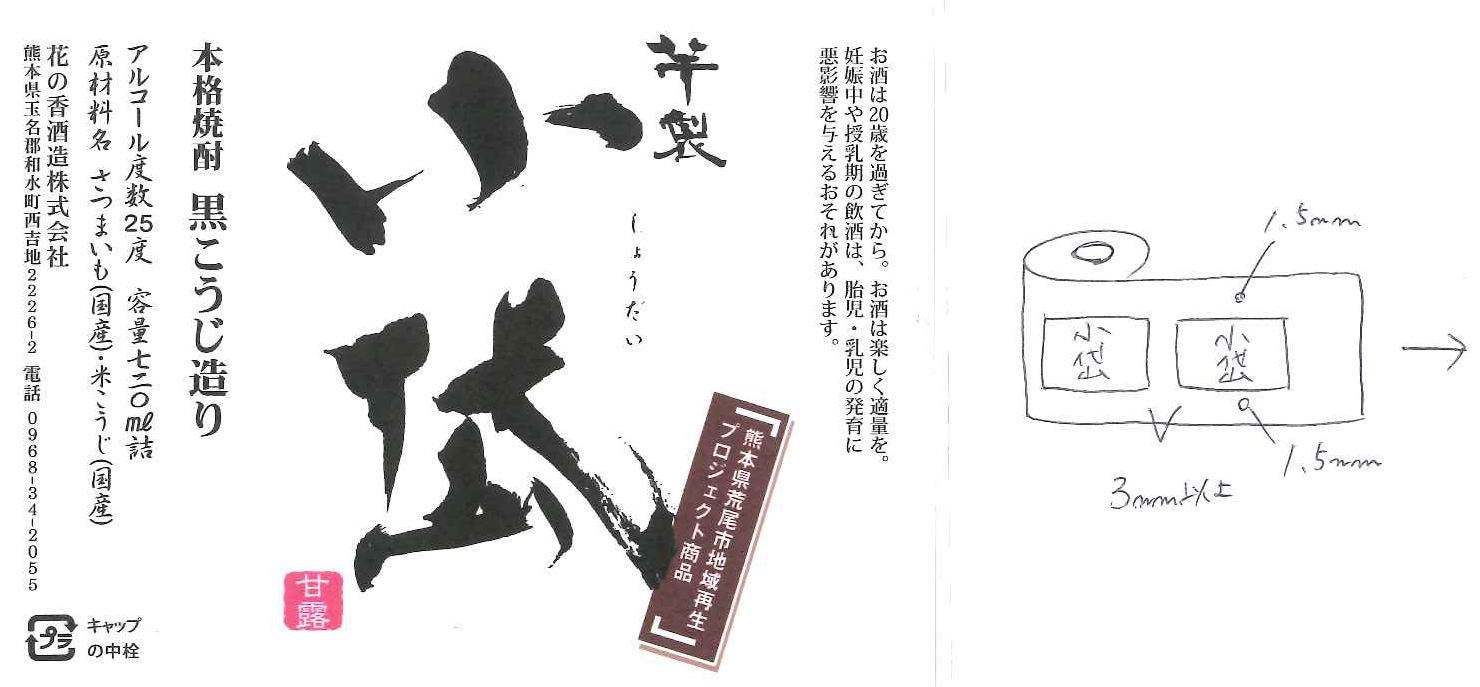 お酒は20歳を過ぎてから。お酒は楽しく適量を。
妊娠中や授乳期の飲酒は、胎児・乳児の発育に
悪影響を与えるおそれがあります。
芋製
しょうだい
小岱
熊本県荒尾市地域再生
プロジェクト商品
甘露
本格焼酎 黒こうじ造り
アルコール度数25度 容量七二〇㎖詰
原材料名 さつまいも(国産)・米こうじ(国産)
花の香酒造株式会社
熊本県玉名郡和水町西吉地2226-2 電話 0968-34-2055
プラ
キャップ
の中栓
1.5mm
小岱
小岱
1.5mm
3mm以上